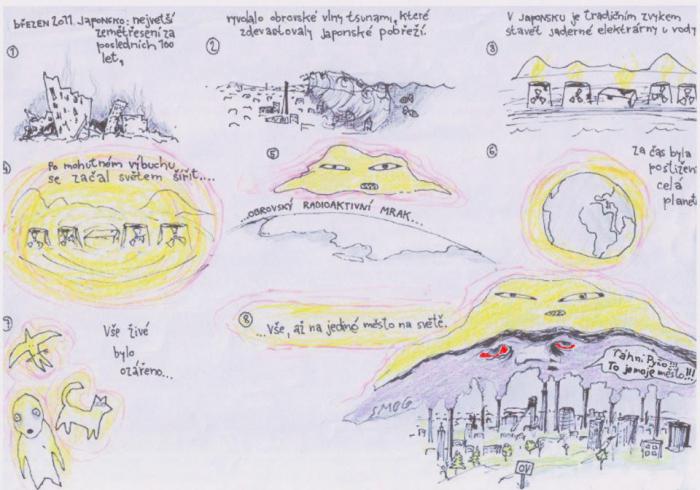 1
BŘEZEN 2011 JAPONSKO: největší
zemětřesení za
posledních 100
let,
2
vyvolalo obrovské vlny tsunami, které
zdevastovaly japonské pobřeží.
3
V JAPONSKU je tradičním zvykem
stavět jaderné elektrárny u vody
Po mohutném výbuchu
se začal světem šířit....
5
...OBROVSKÝ RADIOAKTIVNÍ MRAK...
6
za čas byla
postižena
celá
planet
7
Vše živé
bylo
ozářeno...
8
...Vše, až na jediné město na světě.
Táhni
To je moje město...!!!
SMOG
OV